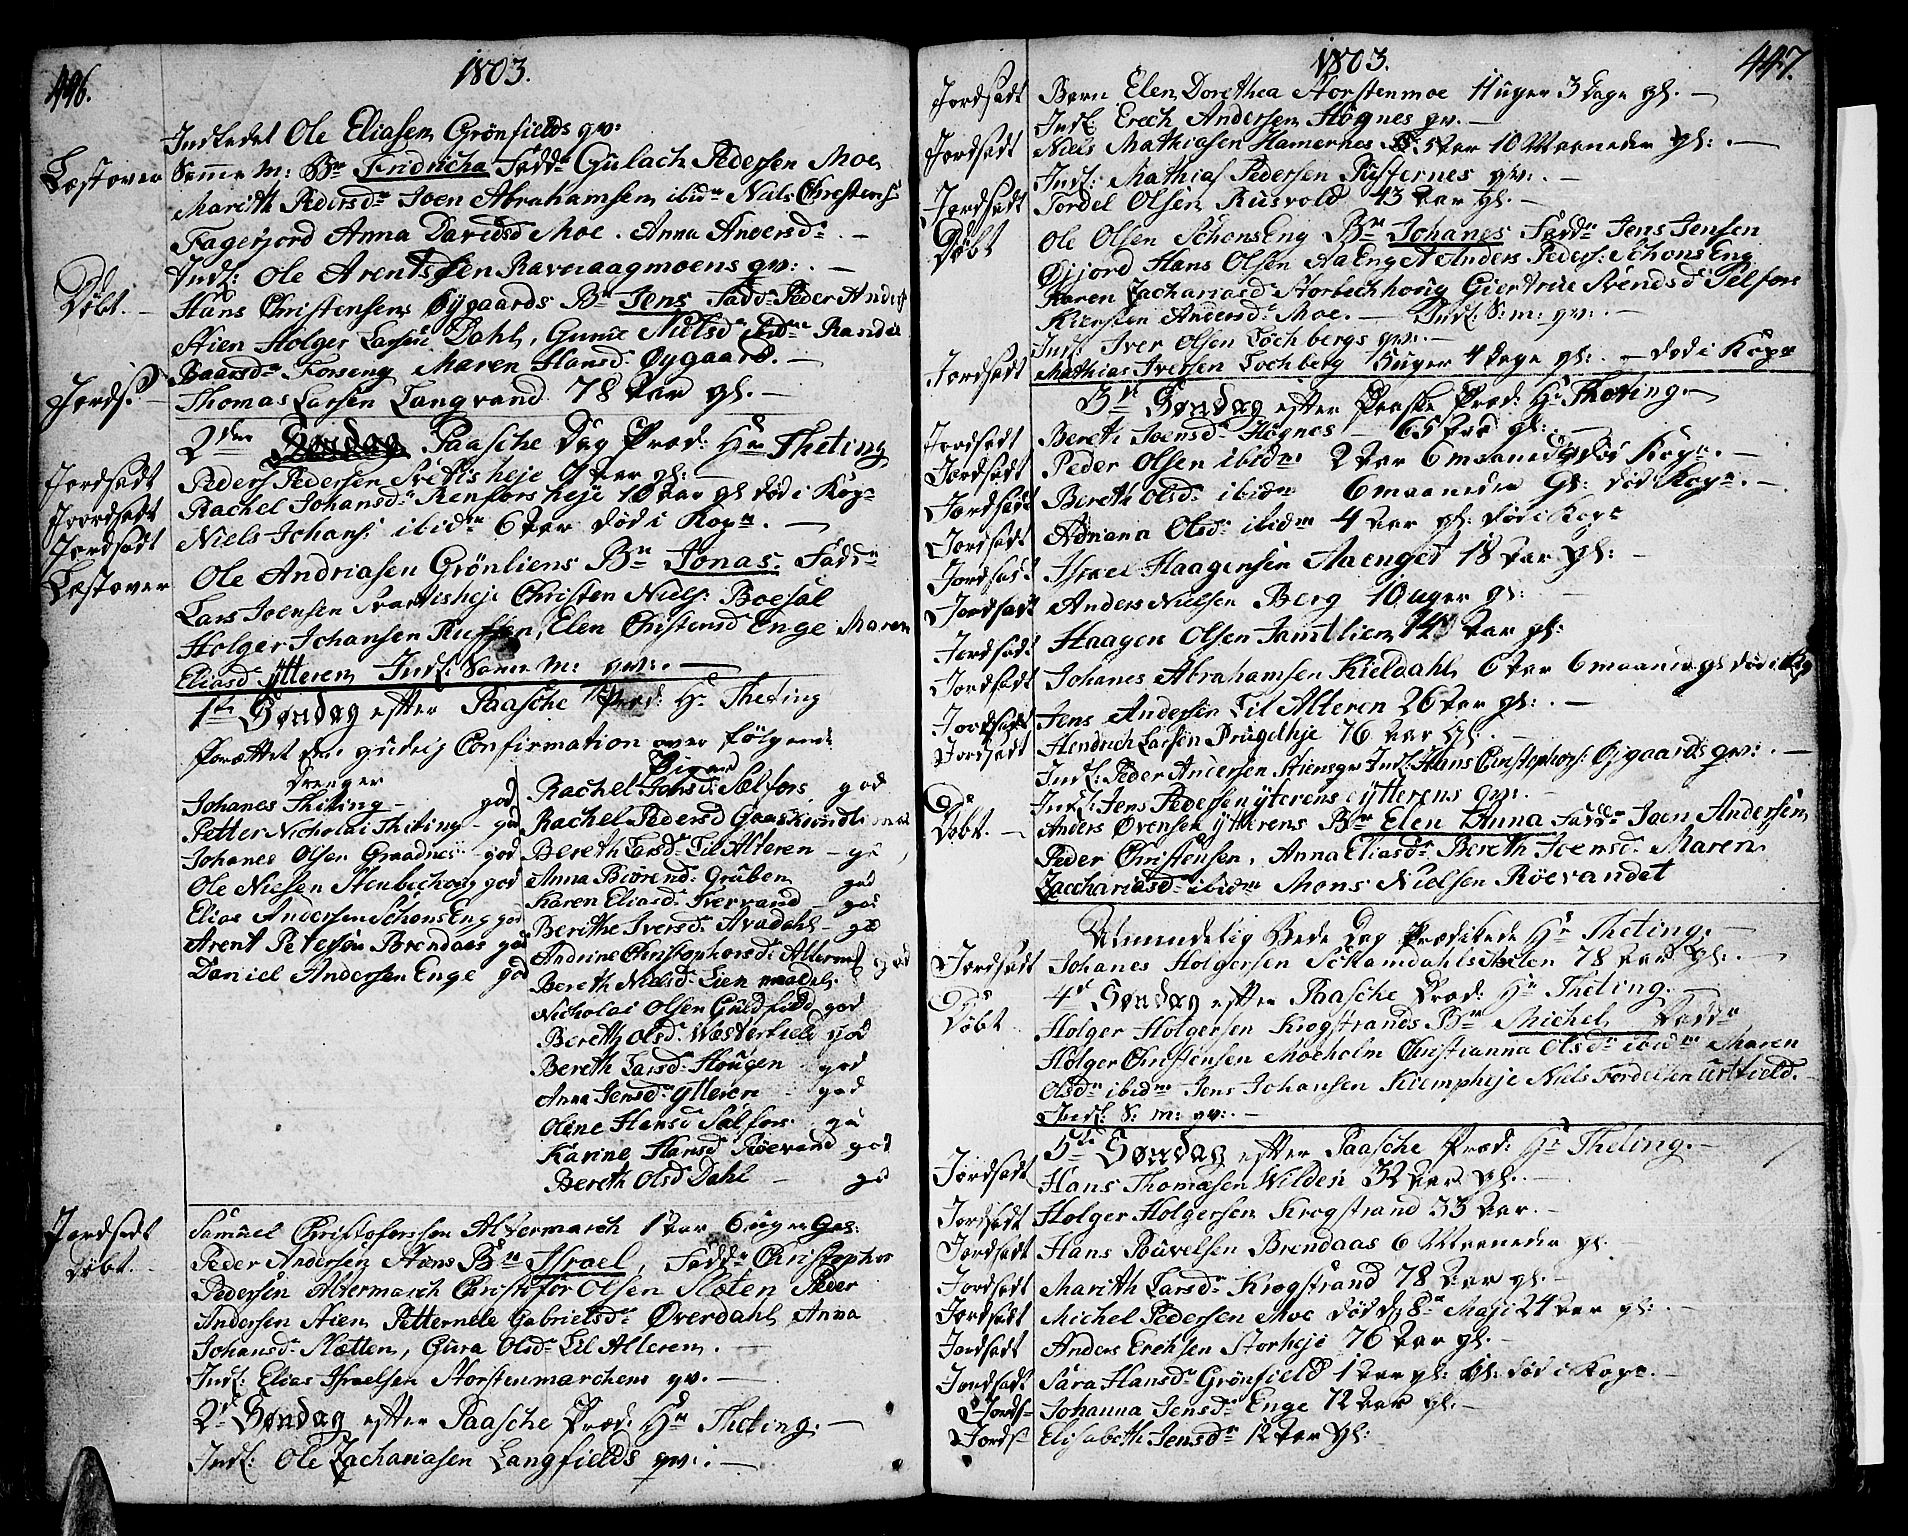 446.
1803.
Indledet Ole Eliasen Grönfields qv:
Læst over Samme M: Bn Fridricha Fadd: Gulach Pedersen Moe
Marith Pedersd: Joen Abrahamsen ibidm Niels Christens:
Fagerjord Anna Davidsd Moe. Anna Andersd: —
Indl: Ole Arentssen Ravnaagmoens qv: —
Døbt. Hans Christensen Øygaards Bn Jens Fadd: Peder Anders:
Stien Holger Larsen Dahl, Gunne Nielsd: ibidm Randi
Baarsd: Forseng Maren Hansd Øygaard. —
Jords: Thomas Larsen Langvand 78 Aar gl. —
2den Paasche Dag Præd: Hr Theting
Jordsadt Peder Pedersen Svetisheje 9 Aar gl: —
Jordsadt Rachel Johansd: Renforsheje 10 Aar gl død i Kopr
Jordsadt Niels Johans: ibidm 6 Aar død i Kopr. —
Læst over Ole Andriasen Grönliens Bn Jonas. Fadd:
Lars Joensen Svartisheje Christen Niels: Boesøl
Holger Johansen Elen Christensd Enge Maren
Eliasd ytteren Indl: Samme M: qv: —
1te Søndag efter Paasche Præd: Hr Theting
forættet den Confirmation over følgende
Drenger
Johanes Theting — god
Petter Nicholai Theting — god
Johanes Olsen Graadnes — god
Ole Nielsen Stenbechoug god
Elias Andersen Schons Eng god
Arent Petersen Brendaas god
Daniel Andersen Enge god
Piger
Rachel Hansd: Selfors god
Rachel Pedersd Gaaskundlimoe
Bereth Larsd: Lil Alteren — god
Anna Biørend: Gruben god
Karen Eliasd: Svervand — god
Berithe Iversd: Avadahl — god
Andrine Christophersd: Alterm: god
Bereth Nielsd:
Nicholai Olsen Guldfield god
Bereth Olsd: Wæsterfield god
Bereth Larsd: Hougen god
Anna Jensd: Ytteren god
Olene Hansd Selfors god
Karine Hansd Røevand god
Bereth Olsd Dahl — god
Jordsadt Samuel Christofersson Altermarch 1 Aar 6 uger Gal:
Døbt. Peder Andersen Stiens Bn Israel, Fadd: Christopher
Pedersen Altermarch Christofor Olsen Sletten Peder
Andersen Stien Petternele Gabrielsd: Øverdahl, Anna
Johansd: Sletten, Gura Olsd: Lil Alteren. —
Indl: Elias Israelsen Storstenmarchens qv. —
2d Søndag efter Paasche Præd: Hr Theting. —
Indl: Ole Zachariasen Langfields qv: —
1803.
447.
Jordsadt Barn Elen Dorethea Storstenmoe 11 uger 3 Dage gl. —
Indl: Erech Andersen Høgnes qv. —
Jordsadt Niels Mathiasen Hamernes 5 Aar 10 Maaneder gl: —
Indl: Mathias Pedersen Rusternes qv: —
Jordsadt Tordel Olsen Rusvold 43 Aar gl. —
Døbt Ole Olsen Schons Eng Bn Johanes Fadd: Jens Jensen
Øijord Hans Olsen Aa Eng Anders Peders: Schons Eng
Karen Zachariasd: Storbechhoug Giertrue Svendsd Selfors
Kiersten Andersd: Moe. — Indl: S: m: qv: —
Indl: Iver Olsen Lochbergs qv: —
Jordsadt Mathias Iversen Lochberg 15 uger 4 dage gl: — død i Kopr
3d Søndag efter Paaske Præd: Hr Theting. —
Jordsadt Bereth Joensd: Høgnes 65 Aar gl: —
Jordsadt Peder Olsen ibidm 2 Aar 6 maaneder død Kopr. —
Jordsadt Bereth Olsd: ibidm 6 maaneder Gl: død Kopr. —
Jordsadt Adriana Olsd: ibidm 4 Aar gl: død i Kopr
Jordsadt Israel Haagensen Aaenget 18 Aar gl: —
Jordsadt Anders Nielsen Berg 10 uger gl: —
Jordsadt Haagen Olsen Jamtlien 14 Aar gl:
Jordsadt Johanes Abrahamsen Kieldahl 6 Aar 6 maaneder gl død i Kop
Jordsadt Jens Andersen Lil Alteren 26 Aar gl: —
Jordsadt Hendrich Larsen Prugelheje 76 Aar gl. —
Indl: Peder Andersen Stiens qv Indl: Hans Christophers: Øygaards qv: —
Indl: Jens Pedersen ytterens qv: —
Døbt. — Anders Ovensen ytterens Bn Elen Anna Fadd: Joen Andersen
Peder Christensen, Anna Eliasd: Bereth Joensd: Maren
Zacchariasd: ibidm Mons Nielsen Röevandet
Almindelig Bede Dag Prædikede Hr Theting. —
Jordsadt Johanes Holgersen 78 Aar gl: —
4d Søndag efter Paasche Præd: Hr Theting. —
Døbt Holger Holgersen Krogstrands Bn Michel, Fadd:
Holger Christensen Moeholm Christianna Olsd: ibidm Maren
Olsd: ibidm Jens Johansen Kiempheje Niels Fordelsen Urtfield. —
Indl: S: m: qv: —
5te Søndag efter Paasche Præd: Hr Theting. —
Jordsadt Hans Thomasen Wilden 32 Aar gl. —
Jordsadt Holger Holgersen Krogstrand 33 Aar. —
Jordsadt Hans Pouvelsen Brendaas 6 Maaneder gl. —
Jordsadt Marith Larsd: Krogstrand 78 Aar gl. —
Jordsadt Michel Pedersen Moe død d: 8de Maji 24 Aar gl: —
Jordsadt Anders Erechsen Storheje 76 Aar gl. —
Jordsadt Sara Hansd: Grönfield 1 Aar gl: død i Kopr. —
Jords: Johanna Jensd: Enge 12 Aar gl. —
Jords: Elisabeth Jensd: 12 Aar gl: